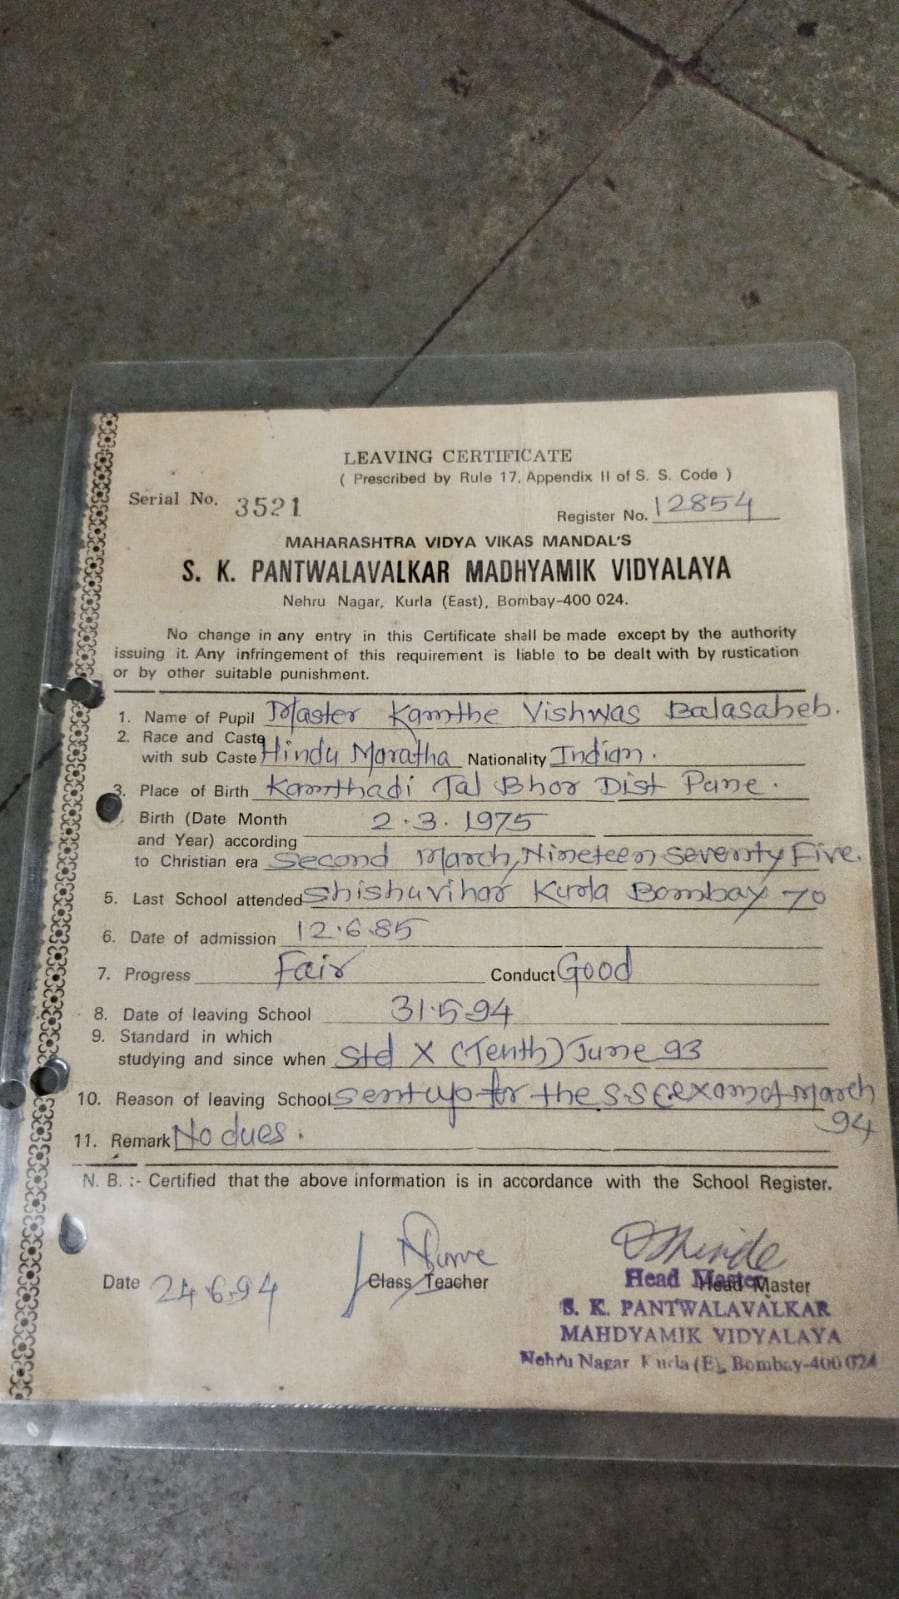 LEAVING CERTIFICATE
( Prescribed by Rule 17, Appendix II of S. S. Code )
Serial No. 3521
Register No. 12854
MAHARASHTRA VIDYA VIKAS MANDAL'S
S. K. PANTWALAVALKAR MADHYAMIK VIDYALAYA
Nehru Nagar, Kurla (East), Bombay-400 024.
No change in any entry in this Certificate shall be made except by the authority
issuing it. Any infringement of this requirement is liable to be dealt with by rustication
or by other suitable punishment.
1. Name of Pupil Master Kamthe Vishwas Balasaheb.
2. Race and Caste
with sub Caste Hindu Maratha Nationality Indian.
3. Place of Birth Kamthadi Tal Bhor Dist Pune.
Birth (Date Month 2.3.1975
and Year) according
to Christian era Second March, Nineteen seventy Five.
5. Last School attended Shishuvihar Kurla Bombay 70
6. Date of admission 12.6.85
7. Progress Fair Conduct Good
8. Date of leaving School 31.5.94
9. Standard in which
studying and since when Std X (Tenth) June 93
10. Reason of leaving School sent up for the S.S.C exam of March
94
11. Remark No dues.
N. B. :- Certified that the above information is in accordance with the School Register.
Date 24.6.94
Class Teacher
Head Master
Head Master
S. K. PANTWALAVALKAR
MAHDYAMIK VIDYALAYA
Nehru Nagar Kurla (E), Bombay-400 024